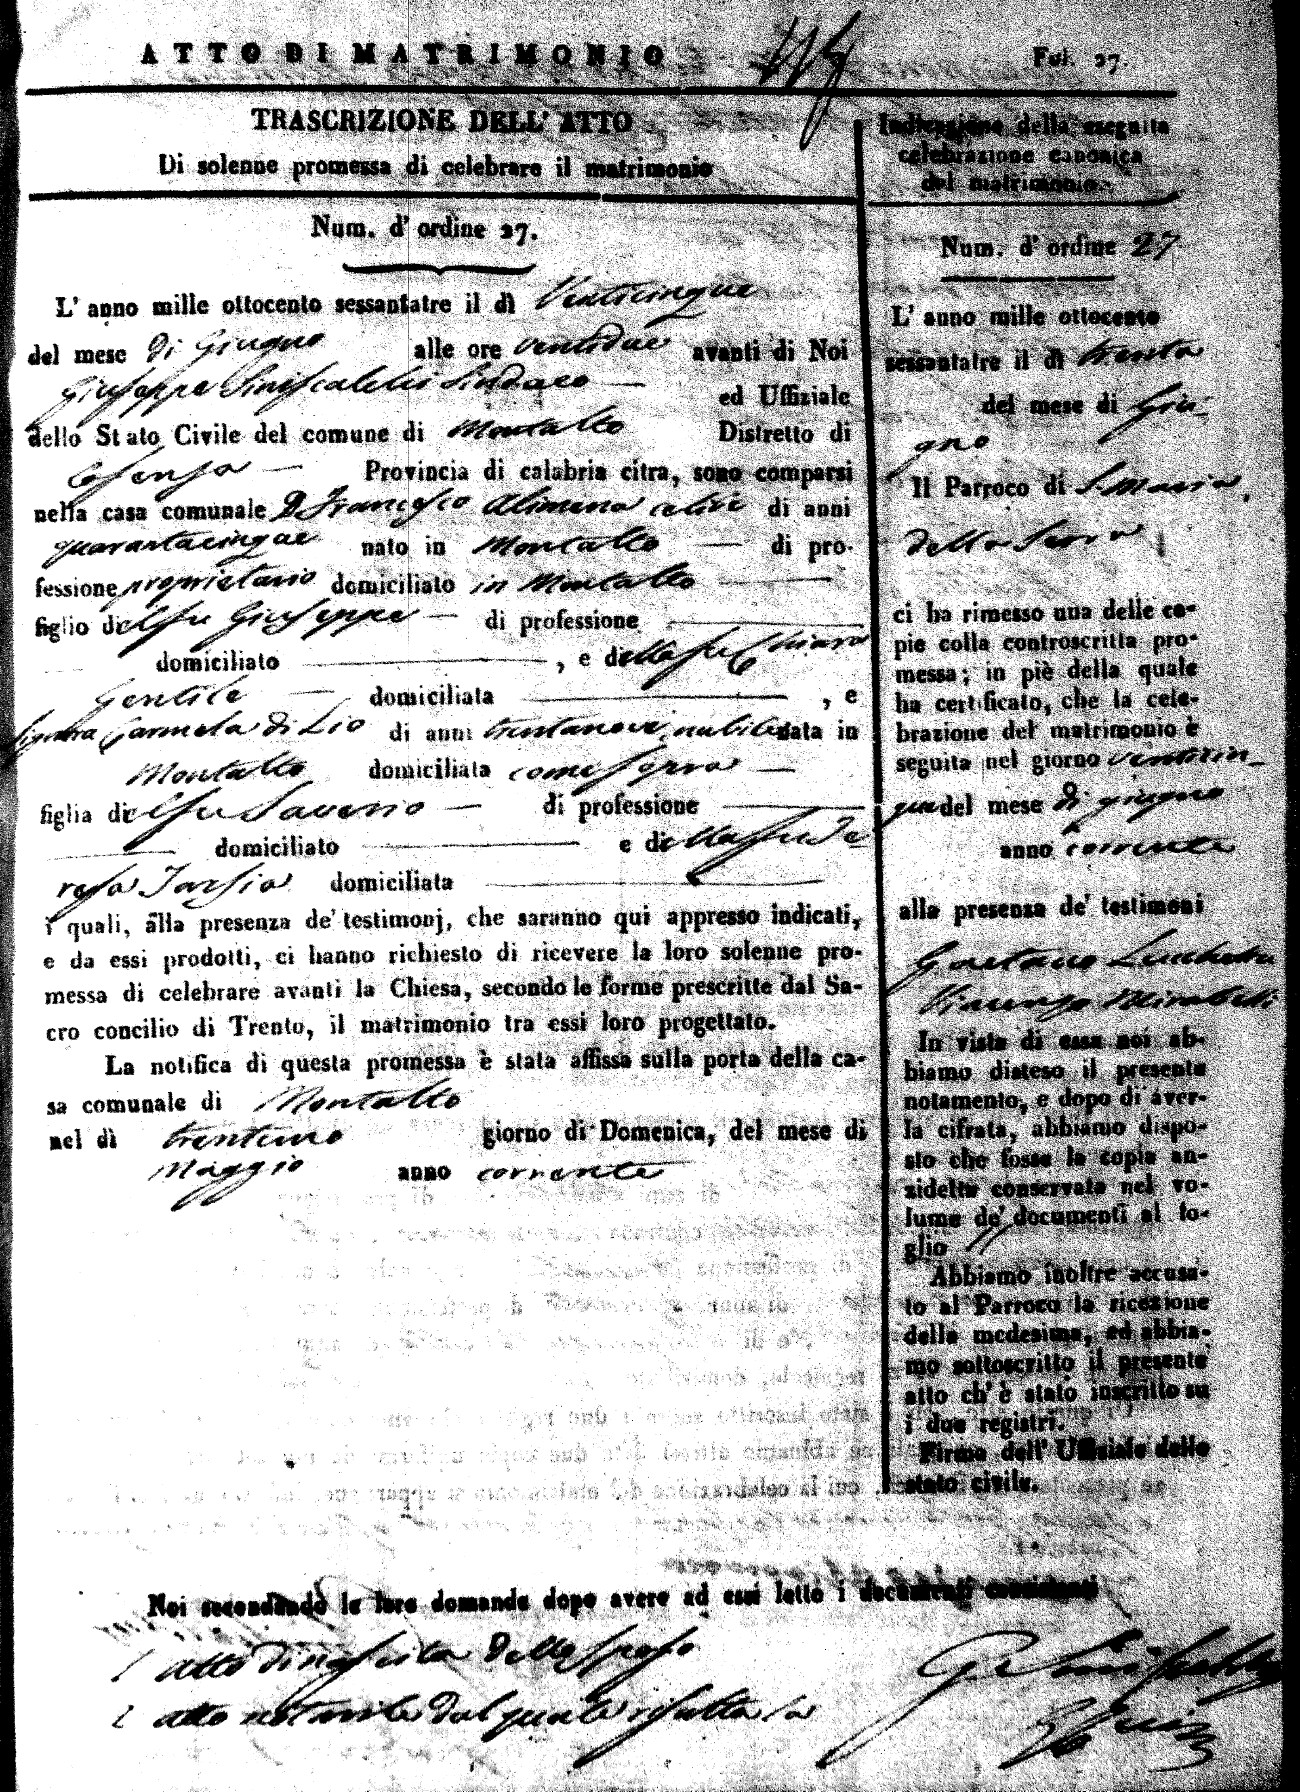 ATTO DI MATRIMONIO
Fol. 27.
TRASCRIZIONE DELL' ATTO
Di solenne promessa di celebrare il matrimonio
Num. d' ordine 27.
L' anno mille ottocento sessantatre il dì Venticinque
del mese di Giugno alle ore ventidue avanti di Noi
Giuseppe Siniscalchi Sindaco ed Uffiziale
dello Stato Civile del comune di Montalto Distretto di
Cosenza Provincia di calabria citra, sono comparsi
nella casa comunale D. Francesco Alimena celibe di anni
quarantacinque nato in Montalto di pro-
fessione proprietario domiciliato in Montalto
figlio del fu Giuseppe di professione
domiciliato , e della fu Chiara
Gentile domiciliata , e
Signora Carmela di Lio di anni trentanove, nubile nata in
Montalto domiciliata come sopra
figlia del fu Saverio di professione
domiciliato e della fu Te
resa Tarsia domiciliata
i quali, alla presenza de' testimonj, che saranno qui appresso indicati,
e da essi prodotti, ci hanno richiesto di ricevere la loro solenne pro-
messa di celebrare avanti la Chiesa, secondo le forme prescritte dal Sa-
cro concilio di Trento, il matrimonio tra essi loro progettato.
La notifica di questa promessa è stata affissa sulla porta della ca-
sa comunale di Montalto
nel dì trentuno giorno di Domenica, del mese di
Maggio anno corrente
Noi secondando le loro domande dopo avere ad essi letto i documenti consistenti
1 atto di nascita dello sposo
2 atto notarile dal quale risulta la
Indicazione della eseguita
celebrazione canonica
del matrimonio.
Num. d' ordine 27
L' anno mille ottocento
sessantatre il dì trenta
del mese di Giu-
gno
Il Parroco di S. Maria
della Serra
ci ha rimesso una delle co-
pie colla controscritta pro-
messa; in piè della quale
ha certificato, che la cele-
brazione del matrimonio è
seguita nel giorno venticin-
que del mese di giugno
anno corrente
alla presenza de' testimoni
Gaetano Lucchetta
Vincenzo Mirabelli
In vista di essa noi ab-
biamo disteso il presente
notamento, e dopo di aver-
la cifrata, abbiamo dispo-
sto che fosse la copia an-
zidetta conservata nel vo-
lume de' documenti al fo-
glio
Abbiamo inoltre accusa-
to al Parroco la ricezione
della medesima, ed abbia-
mo sottoscritto il presente
atto ch' è stato inscritto su
i due registri.
Firma dell' Uffiziale dello
stato civile.